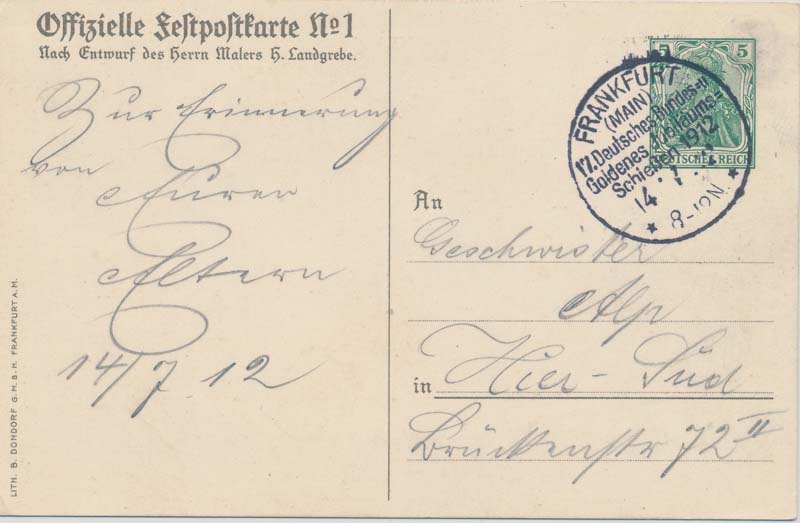 Offizielle Festpostkarte No 1
Nach Entwurf des Herrn Malers H. Landgrebe.
Zur Erinnerung
von
Euren
Eltern
14/7 12
LITH. B. DONDORF G.M.B.H. FRANKFURT A.M.
5 5
DEUTSCHES REICH
FRANKFURT
(MAIN)
17. Deutsches Bundes=u
Goldenes Jubiläums=
Schießen 1912
14. 7.
8-12N
An
Geschwister
Alp
in Hier-Süd
Brückenstr 72 II